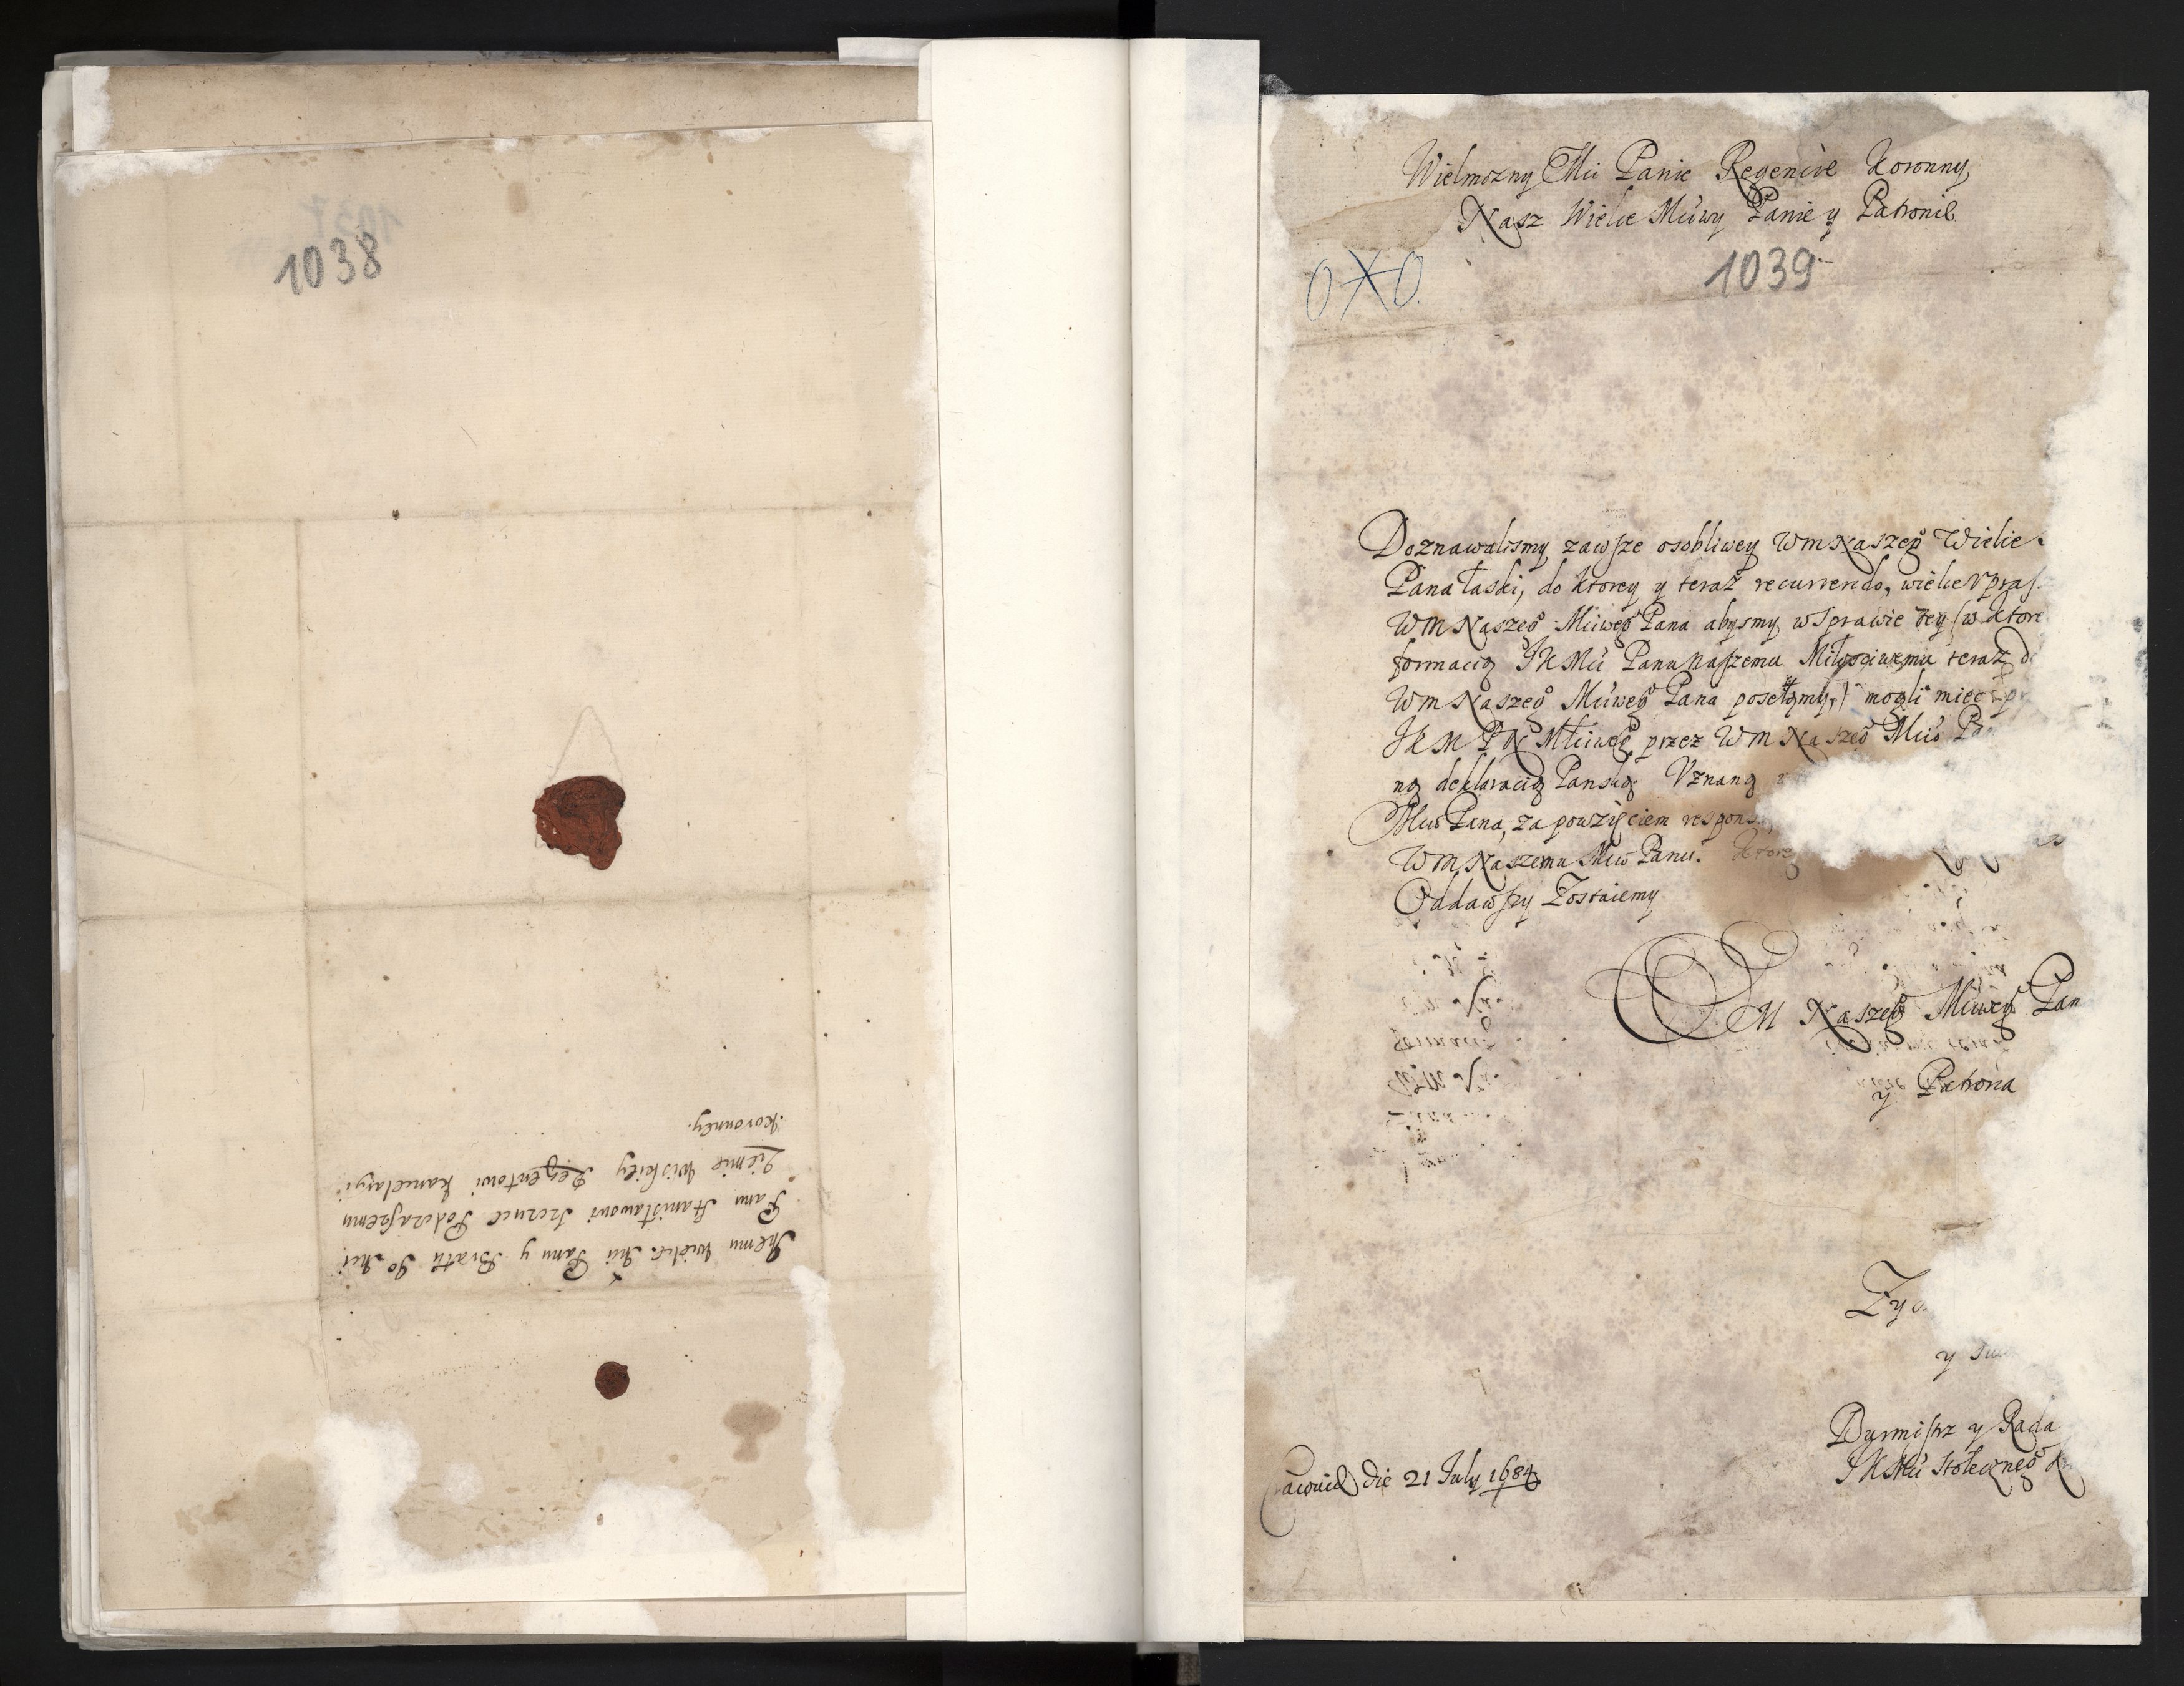 1038
Memu wielce Mci Panu y Bratu Jo Mci
Panu Stanisławowi Szczuce Podczaszemu
Ziemie Wiskiey Regentowi Kancelaryi
Koronney.
Wielmozny Mci Panie Regencie Koronny
Nasz Wielce Mciwy Panie y Patronie
1039
Doznawalismy zawsze osobliwey WM Naszego Wielce
Pana łaski, do ktorey y teraz recurrendo, wielce vpras
WM Naszego Mciwego Pana abysmy w sprawie tey (w ktore
formacią JKMci Panu Naszemu Miłosciwemu teraz d
WM Naszego Mciwego Pana posełamy,) mogli miec pr
JKM P N Młciwego przez WM Naszego Mciwo Pa
ną deklaracią Panską. Vznaną
Mciwo Pana, za powzięciem respons
WM Naszemu Mciw Panu. Ktorey
Oddawszy Zostaiemy
WM Naszego Mciwego Pan
y Patrona
Zycz
y słu
Burmistrz y Rada
JKMci Stołecznego
Cracovie die 21 July 1684